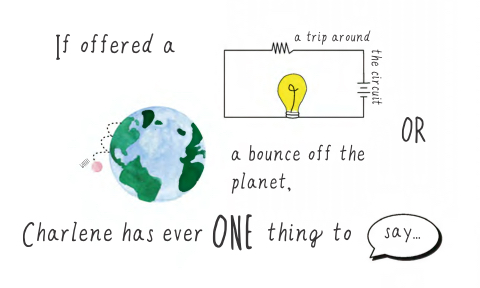 If offered a
a trip around
the circuit
OR
a bounce off the
planet,
Charlene has ever ONE thing to say...